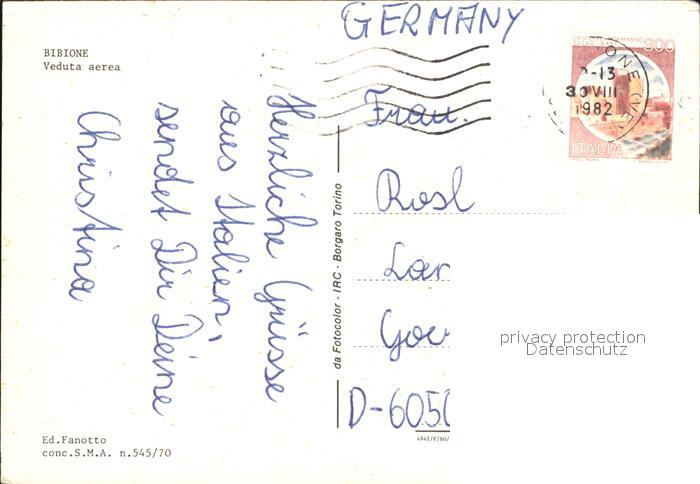 GERMANY
BIBIONE
Veduta aerea
300
BIONE (VE)
-13
30 VIII
1982
ITALIA
Herzliche Grüsse
aus Italien,
sendet Dir Deine
Christina
Frau.
Rosl
Lar
Goe
D-6050
da Fotocolor - IRC - Borgaro Torino
privacy protection
Datenschutz
Ed.Fanotto
conc.S.M.A. n.545/70